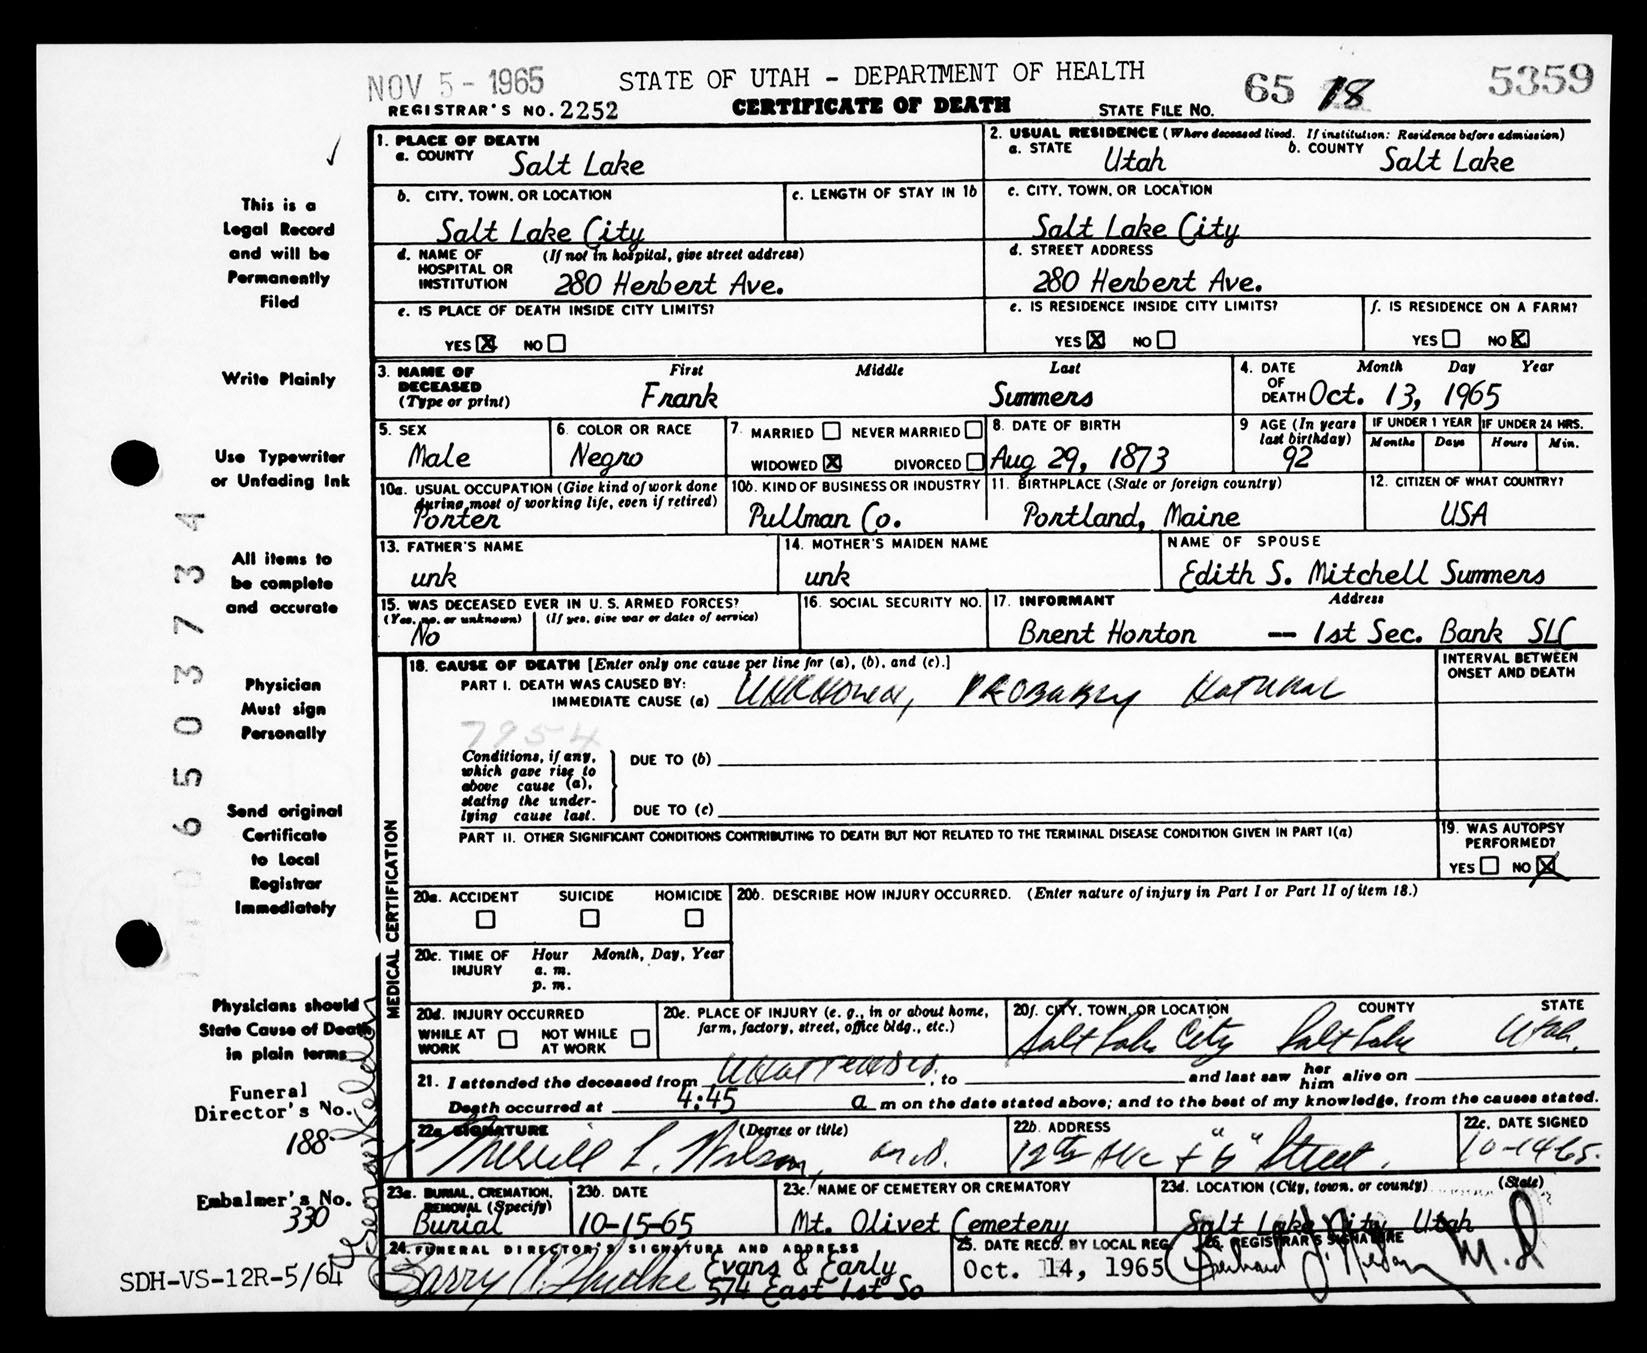 NOV 5 - 1965
STATE OF UTAH - DEPARTMENT OF HEALTH
65 18
5359
REGISTRAR'S NO. 2252
CERTIFICATE OF DEATH
STATE FILE NO.
1. PLACE OF DEATH
a. COUNTY Salt Lake
2. USUAL RESIDENCE (Where deceased lived. If institution: Residence before admission)
a. STATE Utah b. COUNTY Salt Lake
b. CITY, TOWN, OR LOCATION
Salt Lake City
c. LENGTH OF STAY IN 1b
c. CITY, TOWN, OR LOCATION
Salt Lake City
d. NAME OF HOSPITAL OR INSTITUTION (If not in hospital, give street address)
280 Herbert Ave.
d. STREET ADDRESS
280 Herbert Ave.
e. IS PLACE OF DEATH INSIDE CITY LIMITS?
YES X NO
e. IS RESIDENCE INSIDE CITY LIMITS?
YES X NO
f. IS RESIDENCE ON A FARM?
YES NO X
3. NAME OF DECEASED (Type or print)
First Middle Last
Frank Summers
4. DATE OF DEATH Month Day Year
Oct. 13, 1965
5. SEX
Male
6. COLOR OR RACE
Negro
7 MARRIED NEVER MARRIED
WIDOWED X DIVORCED
8. DATE OF BIRTH
Aug 29, 1873
9 AGE (In years last birthday)
92
IF UNDER 1 YEAR
Months Days
IF UNDER 24 HRS.
Hours Min.
10a. USUAL OCCUPATION (Give kind of work done during most of working life, even if retired)
Porter
10b. KIND OF BUSINESS OR INDUSTRY
Pullman Co.
11. BIRTHPLACE (State or foreign country)
Portland, Maine
12. CITIZEN OF WHAT COUNTRY?
USA
13. FATHER'S NAME
unk
14. MOTHER'S MAIDEN NAME
unk
NAME OF SPOUSE
Edith S. Mitchell Summers
15. WAS DECEASED EVER IN U. S. ARMED FORCES?
(Yes, no, or unknown) (If yes, give war or dates of service)
No
16. SOCIAL SECURITY NO.
17. INFORMANT Address
Brent Horton -- 1st Sec. Bank SLC
MEDICAL CERTIFICATION
18. CAUSE OF DEATH [Enter only one cause per line for (a), (b), and (c).]
INTERVAL BETWEEN ONSET AND DEATH
PART I. DEATH WAS CAUSED BY:
IMMEDIATE CAUSE (a) Unknown, probably natural
7954
Conditions, if any, which gave rise to above cause (a), stating the underlying cause last.
DUE TO (b)
DUE TO (c)
PART II. OTHER SIGNIFICANT CONDITIONS CONTRIBUTING TO DEATH BUT NOT RELATED TO THE TERMINAL DISEASE CONDITION GIVEN IN PART I(a)
19. WAS AUTOPSY PERFORMED?
YES NO X
20a. ACCIDENT SUICIDE HOMICIDE
20b. DESCRIBE HOW INJURY OCCURRED. (Enter nature of injury in Part I or Part II of item 18.)
20c. TIME OF INJURY Hour Month, Day, Year
a. m.
p. m.
20d. INJURY OCCURRED
WHILE AT WORK NOT WHILE AT WORK
20e. PLACE OF INJURY (e. g., in or about home, farm, factory, street, office bldg., etc.)
20f. CITY, TOWN, OR LOCATION COUNTY STATE
Salt Lake City Salt Lake Utah.
21. I attended the deceased from Unattended, to and last saw her him alive on
Death occurred at 4:45 a m on the date stated above; and to the best of my knowledge, from the causes stated.
22a SIGNATURE (Degree or title)
Merrill L. Wilson, M.D.
22b. ADDRESS
12th Ave + "G" Street.
22c. DATE SIGNED
10-14-65.
23a. BURIAL, CREMATION, REMOVAL (Specify)
Burial
23b. DATE
10-15-65
23c. NAME OF CEMETERY OR CREMATORY
Mt. Olivet Cemetery
23d. LOCATION (City, town, or county) (State)
Salt Lake City, Utah
24. FUNERAL DIRECTOR'S SIGNATURE AND ADDRESS
Evans & Early
574 East 1st So
25. DATE RECD. BY LOCAL REG.
Oct. 14, 1965
26. REGISTRAR'S SIGNATURE
M.D
This is a
Legal Record
and will be
Permanently
Filed
Write Plainly
Use Typewriter
or Unfading Ink
All items to
be complete
and accurate
Physician
Must sign
Personally
Send original
Certificate
to Local
Registrar
Immediately
Physicians should
State Cause of Death
in plain terms
Funeral
Director's No.
188
Embalmer's No.
330
SDH-VS-12R-5/64
06503734